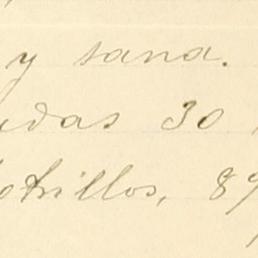 y sana.
udas 30
otrillos, 89